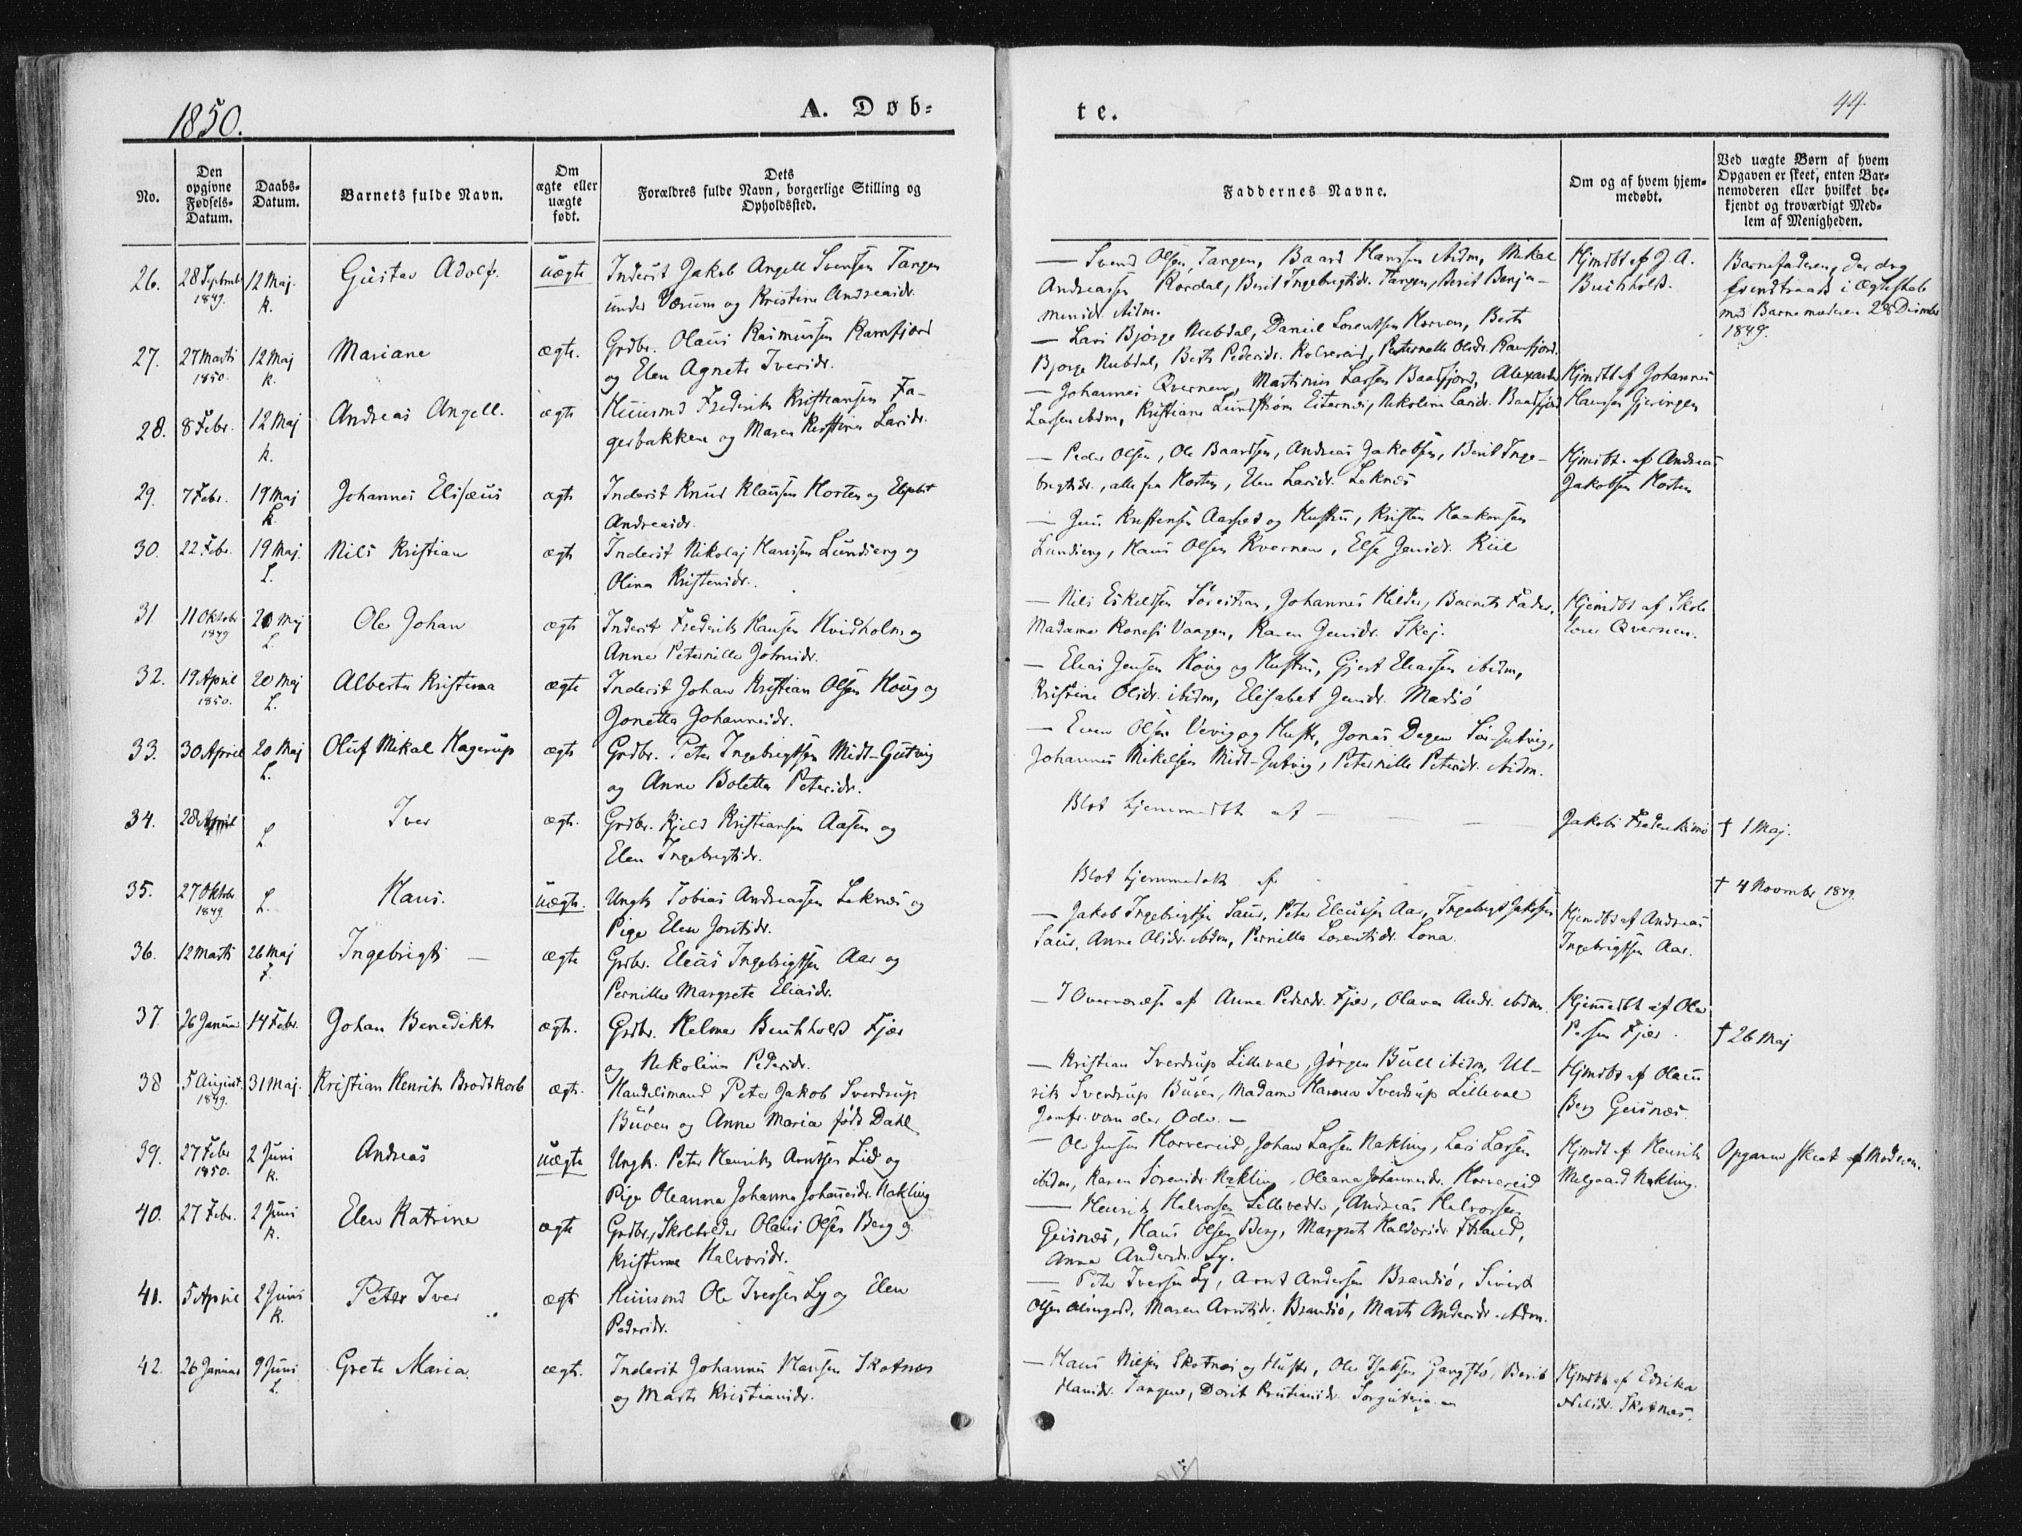 1850.
A. Døb=
te.
44
No.
Den opgivne Fødsels-Datum.
Daabs-Datum.
Barnets fulde Navn.
Om ægte eller uægte født.
Dets Forældres fulde Navn, borgerlige Stilling og Opholdssted.
Faddernes Navne.
Om og af hvem hjemmedøbt.
Ved uægte Børn af hvem Opgaven er skeet, enten Barnemoderen eller hvilket bekjendt og troværdigt Medlem af Menigheden.
26. 28 Septembr 1849. 12 Maj. k. Gustav Adolf. uægte
Inderst Jakob Angell Svensen Tangen
under Værum og Kristine Andreasdr.
— Svend Olsen Tangen, Baard Hanssen ibidm, Mikal
Andreassen Rordal, Berit Ingebrigtsdr. Tangen, Berit Benja-
minsdr. ibidm.
Hjmdbt af J. A.
Buchholdt.
Barnefaderen, der dog
indtraadt i Ægteskab
med Barnemoderen 28 Decmbr
1849.
27. 27 Marts 1850. 12 Maj k. Mariane ægte.
Grdbr. Olaus Rasmussen Ramfjord
og Elen Agnete Iversdr.
— Lars Bjørge Nubdal, Daniel Lorentsen Horven, Berth
Bjørge Nubdal, Berth Pedersdr. Kolvereid, Peternelle Olsdr. Ramfjord.
28. 8 Febr. 12 Maj k. Andreas Angell. ægte
Huusmd Frederik Kristiansen Fa-
gerbakken og Maren Kirstina Larsdr.
— Johannes Qvernen, Martinus Larsen Baadfjord, Alexander
Larsen ibidm, Kristiane Lundstrøm Eiternes, Nikoline Larsdr. Baadfjord
Hjmdbt af Johannes
Hansen Gjeringen
29. 7 Febr. 19 Maj k. Johannes Elisæus ægte
Inderst Knud Klausen Horten og Elisabet
Andreasdr.
— Peder Olsen, Ole Baardsen, Andreas Jakobsen, Berit Inge-
brigtsdr., alle fra Horten, Elen Larsdr. Leknes
Hjmdbt. af Andreas
Jakobsen Horten
30. 22 Febr. 19 Maj. L. Nils Kristian ægte
Inderst Nikolaj Hansen Lundseng og
Olina Kristensdr.
— Jens Kristensen Aarsed og Hustru, Kristen Haakonsen
Lundseng, Hans Olsen Kvernen, Else Jensdr. Kiil
31. 11 Oktobr 1849 20 Maj L. Ole Johan ægte
Inderst Frederik Hansen Hvidholm og
Anne Peternille Johnsdr.
— Nils Eskildsen Søreistran, Johannes Hilder, Barnets Fader,
Madame Konesi Vaagen, Karen Jensdr. Skej.
Hjemdbt af Skole
lærer Qvernen.
32. 19 April 1850. 20 Maj L. Alberte Kristina ægte
Inderst Johan Kristian Olsen Houg og
Jonetta Johannesdr.
— Elias Jensen Houg og Hustru, Gjert Eliassen ibidm,
Kristine Olsdr. ibidm, Elisabet Jensdr. Madsø
33. 30 April 20 Maj L. Oluf Mikal Hagerup ægte
Grdbr. Peter Ingebrigtsen Midt-Gutvig
og Anne Boletta Petersdr.
— Even Olsen Vevig og Hustr., Jonas Degen Sør-Gutvig,
Johannes Mikelsen Midt-Gutvig, Peternille Petersdr. ibidm.
34. 28 April L. Iver ægte.
Grdbr. Kjeld Kristiansen Aasen og
Elen Ingebrigtsdr.
Blot hjemmedbt af — — —
Jakob Frederiksmo
† 1 Maj.
35. 27 Oktobr 1849. L. Hans. uægte.
Ungk. Tobias Andreassen Leknes og
Pige Elen Jonsdr.
Blot hjemmedøbt af
† 4 Novembr 1849.
36. 12 Marts 26 Maj F. Ingebrigt — ægte
Grdbr. Eleus Ingebrigtsen Aar og
Pernille Margrete Eliasdr.
— Jakob Ingebrigtsen Saur, Peter Eleussen Aar, Ingebrigt Jakobsen
Saur, Anne Olsdr. ibidm, Pernilla Lorentsdr. Lona.
Hjemdbt af Andreas
Ingebrigtsen Aar.
37. 26 Januar 14 Febr. Johan Benedikt ægte.
Grdbr. Helmer Buchholdt Fjær
og Nikolina Pedersdr.
— I Overværelse af Anne Pedersdr. Fjær, Olava Andr. ibidm.
Hjemmedbt af Ole
Fjær.
† 26 Maj
38 5 August. 1849. 31 Maj. Kristian Henrik Brodtkorb ægte.
Handelsmand Peter Jakob Sverdrup
Buøen og Anne Maria født Dahl
— Kristian Sverdrup Lilleval, Jørgen Bull ibidm, Ul-
rik Sverdrup Buøen, Madame Hanna Sverdrup Lilleval
Jomfr. von der Ode. —
Hjmdbt af Olaus
Berg Geisnæs.
39. 27 Febr 1850. 2 Juni k. Andreas uægte
Ungk. Peter Henrik Arntsen Lid og
Pige Oleanna Johanna Johannesdr. Nakling
— Ole Jensen Horvereid, Johan Larsen Nakling, Lars Larsen
ibidm, Karen Sørensdr. Nakling, Oleana Johannesdr. Horvereid
Hjmdt af Henrik
Melgaard Nakling.
Opgaven skeet af Moderen.
40. 27 Febr. 2 Juni k. Elen Katrine ægte
Grdbr., Skoleholder Olaus Olsen Berg og
Kristianna Halvorsdr.
— Henrik Halvorsen Lillevedde, Andreas Halvorsen
Geisnes, Hans Olsen Berg, Margret Haldorsdr. Strand,
Anne Andersdr. Ly.
41. 5 April 2 Juni k. Peter Iver ægte
Huusmd Ole Iversen Ly og Elen
Pedersdr.
— Peter Iversen Ly, Arnt Andersen Brandsø, Sivert
Olsen Olsengard, Maren Arntsdr. Brandsø, Marth Andersdr. ibidm.
42. 26 Januar 9 Juni L. Grete Maria ægte.
Inderst Johannes Hansen Skotnes
og Marth Kristiansdr.
— Hans Nielsen Skotnes og Hustr., Ole Isaksen Gangstø, Berit
Hansdr. Tangen, Dorit Kristiansdr.
Hjmdbt af Edrika
Nilsdr. Skotnes.